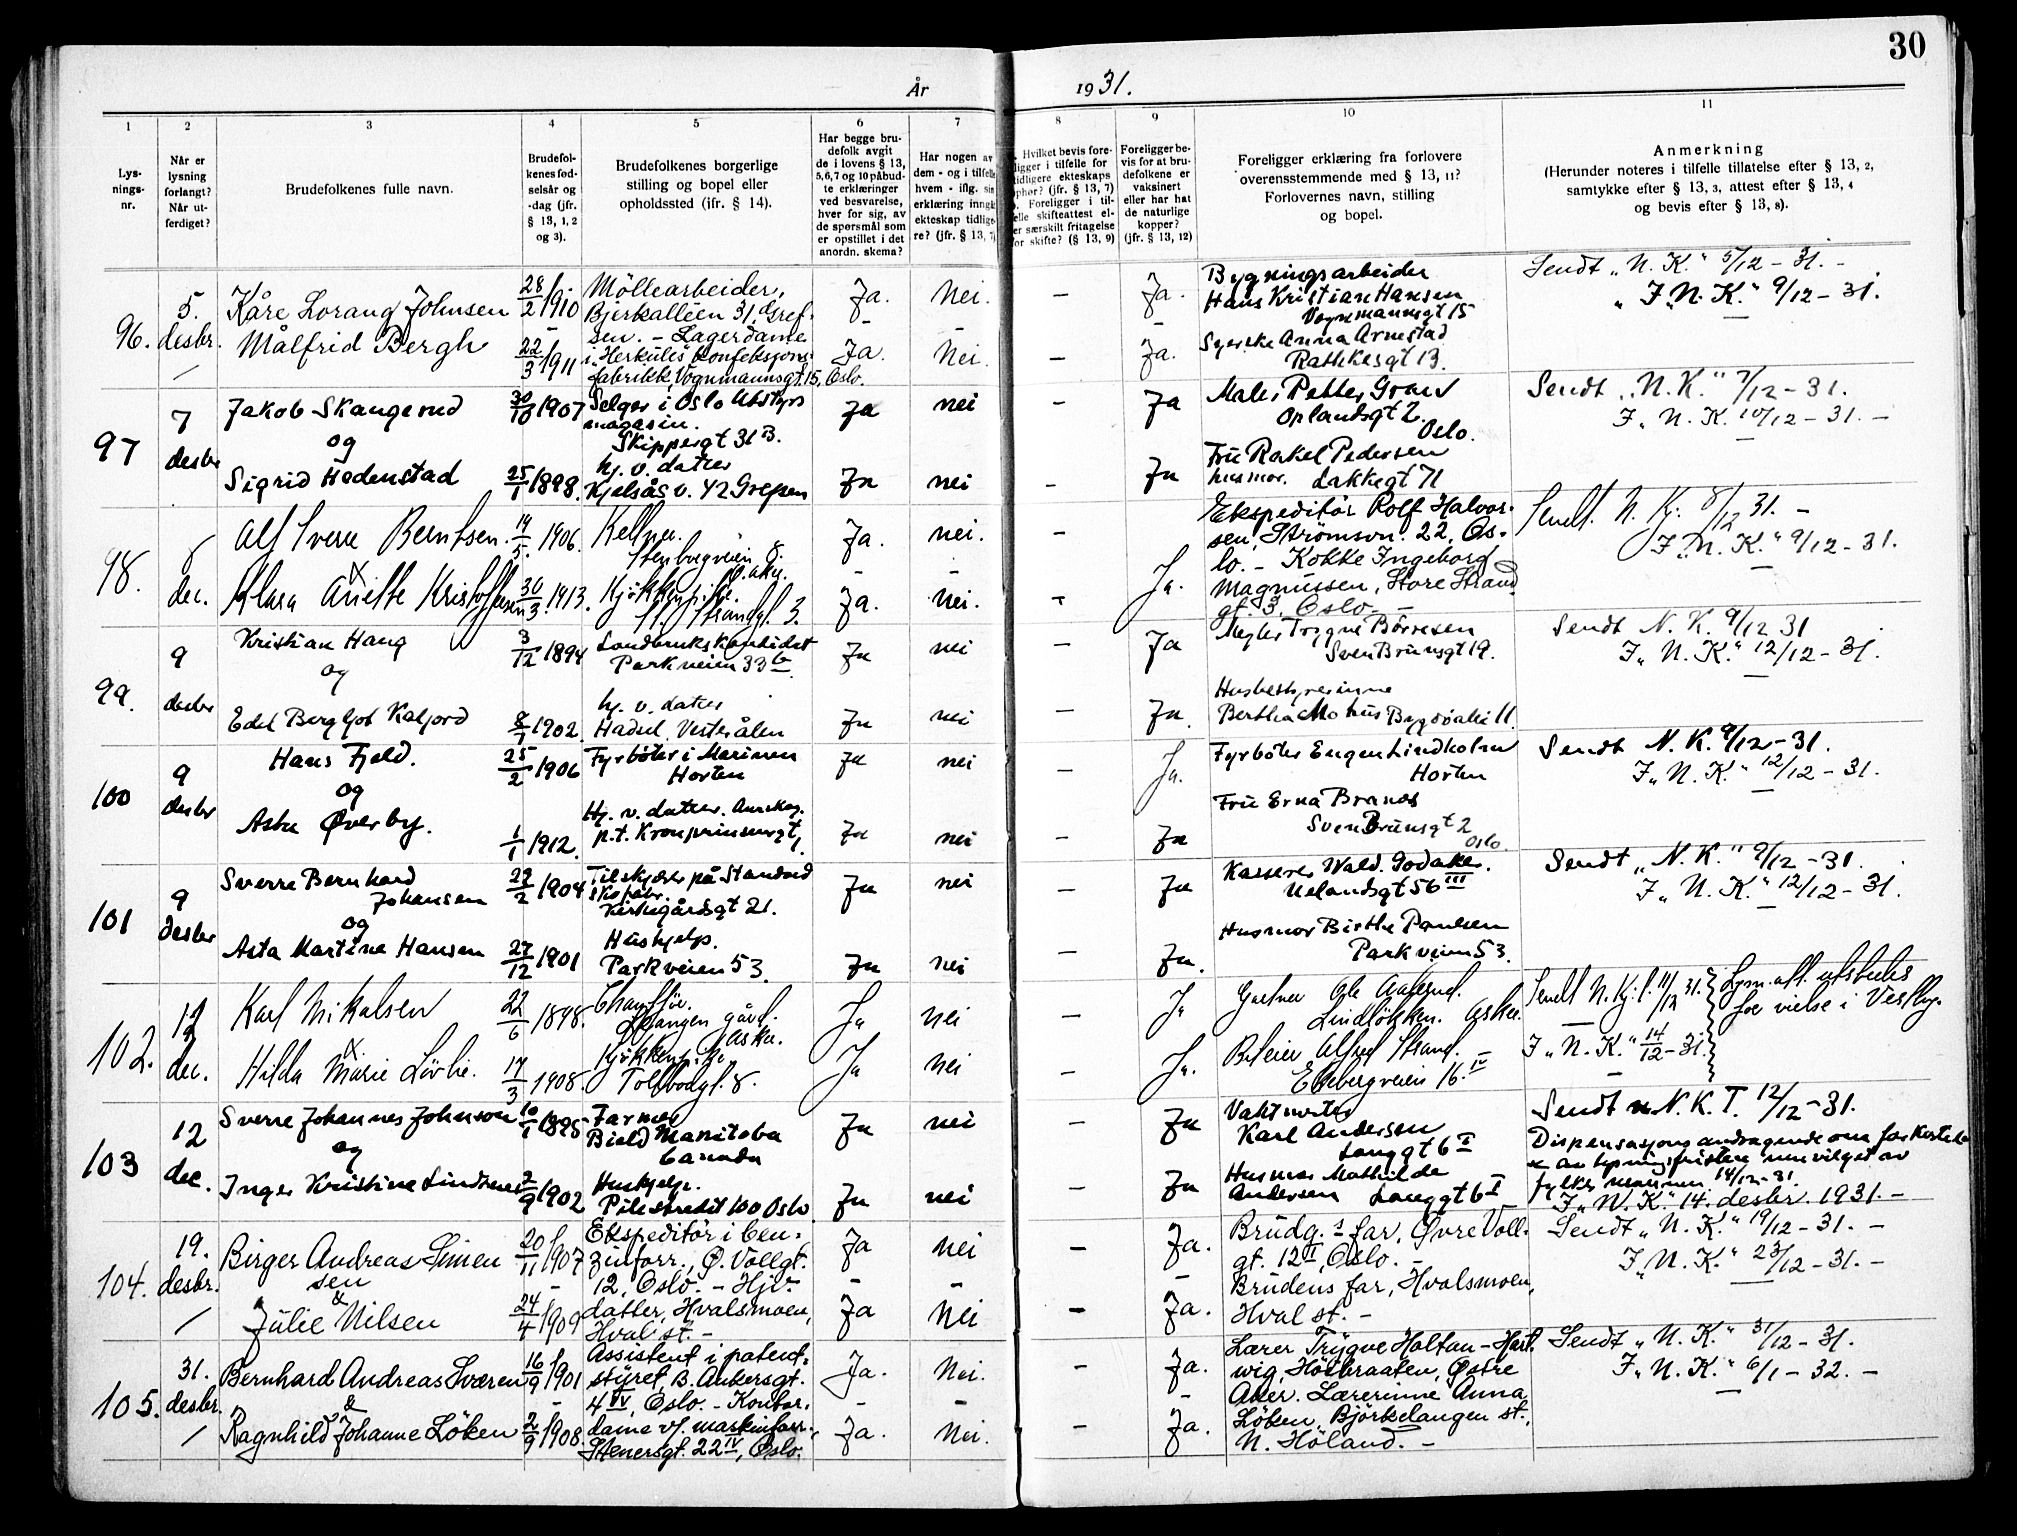 30
År 1931.
1
2
3
4
5
6
7
8
9
10
11
Lys-
nings-
nr.
Når er
lysning
forlangt?
Når ut-
ferdiget?
Brudefolkenes fulle navn.
Brudefol-
kenes fød-
selsår og
-dag (jfr.
§ 13, 1, 2
og 3).
Brudefolkenes borgerlige
stilling og bopel eller
opholdssted (jfr. § 14).
Har begge bru-
defolk avgit
de i lovens § 13,
5,6,7 og 10 påbud-
te erklæringer
ved besvarelse,
hver for sig, av
de spørsmål som
er opstillet i det
anordn. skema?
Har nogen av
dem - og i tilfelle
hvem - iflg. sin
erklæring inngått
ekteskap tidlige-
re? (jfr. § 13, 7)
Hvilket bevis fore-
ligger i tilfelle for
tidligere ekteskaps
ophør? (jfr. § 13, 7)
Foreligger i til-
felle skifteattest el-
ler særskilt fritagelse
for skifte? (§ 13, 9)
Foreligger be-
vis for at bru-
defolkene er
vaksinert
eller har hat
de naturlige
kopper?
(jfr. § 13, 12)
Foreligger erklæring fra forlovere
overensstemmende med § 13, 11?
Forlovernes navn, stilling
og bopel.
Anmerkning
(Herunder noteres i tilfelle tillatelse efter § 13, 2,
samtykke efter § 13, 3, attest efter § 13, 4
og bevis efter § 13, 8).
96.
5.
desbr.
Kåre Lorang Johnsen
Målfrid Bergh
28/2 1910
22/3 1911
Möllearbeider,
Bjerkalléen 31, Gref-
sen. - Lagerdame
i Herkules Konfeksjons-
fabrikk, Vognmannsgt. 15, Oslo.
Ja.
Ja.
Nei.
Nei.
Ja.
Ja.
Bygningsarbeider
Hans Kristian Hansen
Vognmannsgt 15
Syerske Anna Arnestad
Rathkesgt 13.
Sendt „N. K." 5/12 - 31. -
„ F. „N. K." 9/12 - 31.
97
7
desbr
Jakob Skangerud
og
Sigrid Hedenstad
30/10 1907
25/1 1898.
Selger i Oslo Utstyrs
magasin.
Skippergt 31 B.
hj. v. datter
Kjelsås v. 42 Grefsen
Ja
Ja
nei
nei
Ja
Ja
Maler Petter Gran
Oplandsgt 2.
Oslo.
Fru Rakel Pedersen
husmor. Lakkegt 71
Sendt „N. K." 7/12 - 31.
F. „N. K. 10/12 - 31. -
98.
8
dec.
Alf Sverre Berntsen.
&
Klara Anette Kristoffersen
14/5. 1906.
30/3. 1913.
Kellner.
8.
Kjøkkenpike.
St. Strandgt. 3.
Ja.
Ja.
nei.
nei.
Ja.
Ekspeditör Rolf Halvor-
sen, Strömsvn. 22, Os-
lo. - Kokke Ingeborg
Magnussen, Store Strand
gt. 3, Oslo. -
Sendt. N. Kj. 8/12 31. -
F. „N. K." 9/12 - 31.
99.
9
desbr
Kristian Haug
og
Edel Bergljot Kaljord
3/12 1894
8/1 1902.
Landbrukskandidat
Parkveien 33 b.
hj. v. datter
Hadsel, Vesterålen
Ja
Ja
nei
nei
Ja
Ja.
Megler Trygve Börresen
Sven Brunsgt 19.
Husbestyrerinne
Bertha Mohus Bygdöalle 11.
Sendt N. K. 9/12 31
F. „N. K." 12/12 - 31.
100
9
desbr
Hans Fjeld.
og
Asta Øverby.
25/2 1906
1/1 1912.
Fyrböter i Marinen
Horten
Hj. v. datter. Aurskog.
p.t. Kronprinsensgt 1.
Ja
Ja
nei
nei
Ja.
Ja
Fyrböter Eugen Lindholm
Horten
Fru Erna Brandt
Sven Brunsgt 2
Oslo
Sendt N. K. 9/12 - 31.
F. „N. K." 12/12 - 31.
101
9
desbr
Sverre Bernhard
Johansen
og
Asta Martine Hansen
22/2 1904
27/12 1901
Tilskjærer på Standard
skofabr.
Kirkegårdsgt 21.
Hushjelp.
Parkveien 53
Ja
Ja
nei
nei
Ja
Ja.
Kasserer Wald. Godaker.
Uelandsgt 56 III
Husmor Birthe Paulsen
Parkveien 53.
Sendt „N. K." 9/12 - 31.
F. „N. K." 12/12 - 31.
102.
12
dec.
Karl Nikalsen
&
Hilda Marie Lövlie.
22/6 1898.
17/3 1908.
Chaufför.
gård.
Asker.
Kjøkkenpike.
Tollbodgt. 8.
Ja
Ja
nei
nei
Ja
Ja.
Gartner Ole Aalerud.
Lindlökken. Asker.
Alfred Strand. -
Ekebergveien 16. IV
Sendt N. Kj. t. 11/12 31.
F. „N. K." 14/12 - 31.
Lysn. att. utstedes
for vielse i Vestby.
103
12
dec.
Sverre Johannes Johnson
og
Inger Kristine Lindtner
10/1 1895
2/9 1902
Farmer
Bield Manitoba
Canada
Hushjelp.
Pilestredet 100 Oslo
Ja
Ja
nei
nei
Ja
Ja
Vaktmester
Karl Andersen
Langgt 6 I
Husmor Mathilde
Andersen Langgt 6 I
Sendt „N. K. T. 12/12 - 31.
Dispensasjonsandragende om forkortelse
av lysningsfristen innvilget av
fylkesmannen 14/12-31.
F. „N. K." 14. desbr. 1931. -
104.
19.
desbr.
Birger Andreas Simen
sen
&
Julie Nilsen
20/11 1907
24/4 1909
Ekspeditör i ben-
zinforr., Ø. Vollgt.
12, Oslo. - Hjv.
datter, Hvalsmoen,
Hval st. -
Ja
Ja
nei
Nei
Ja.
Ja.
Brudg.s far, Øvre Voll-
gt. 12 I, Oslo. -
Brudens far, Hvalsmoen,
Hval st. -
Sendt „N. K." 19/12 - 31. -
F. „N. K." 23/12 - 31. -
105.
31.
desbr.
Bernhard Andreas Sværen
&
Ragnhild Johanne Löken
16/9 1901
2/9 1908
Assistent i patent-
styret, B. Ankersgt.
4 IV, Oslo. - Kontor-
dame v/. markinforr.,
Stenersgt. 22 IV, Oslo.
Ja.
Ja.
Nei.
Nei.
Ja.
Ja.
Lærer Trygve Holtan-Hart-
wig, Höibraaten, Østre
Aker. Lærerinne Anna
Löken, Björkelangen st.,
N. Höland. -
Sendt „N. K." 31/12 - 31.
F. „N. K." 6/1 - 32. -